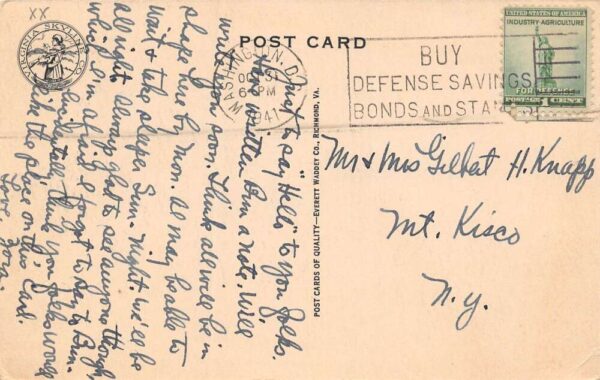 XX
VIRGINIA SKYLINE CO.
POST CARD
WASHINGTON, D.C.
OCT 31
6 PM
1941
BUY
DEFENSE SAVINGS
BONDS AND STA
UNITED STATES OF AMERICA
INDUSTRY-AGRICULTURE
FOR DEFENSE
POSTAGE 1 CENT
Mr & Mrs Gilbert H. Knapp
Mt. Kisco
N.Y.
POST CARDS OF QUALITY—EVERETT WADDEY CO., RICHMOND, VA.
Just to say "Hello" to you folks.
Have written Brin a note. Will
write you soon. Think all will be in
shape here by Mon. Al may be able to
wait & take sleeper Sun. night. We'll be
all right. Always glad to see anyone though,
which I'm afraid I forgot to say to Brin.
Incidentally, think you folks would
like the place on this card.
Love,
Zora.